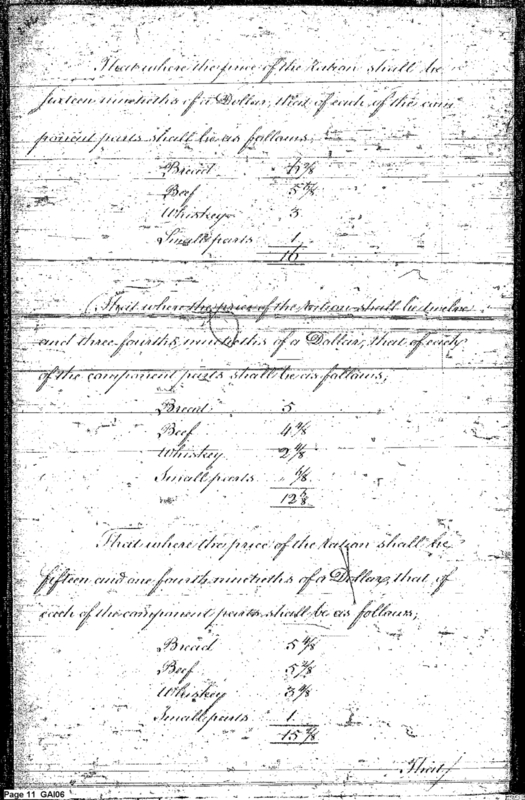 That where the price of the Ration shall be
sixteen ninetieths of a Dollar, that of each of the com
ponent parts shall be as follows;
Bread 6 3/8
Beef 5 5/8
Whiskey 3
Small parts 1
16
That where the price of the Ration shall be twelve
and three fourths ninetieths of a Dollar, that of each
of the component parts shall be as follows;
Bread 5
Beef 4 4/8
Whiskey 2 4/8
Small parts 6/8
12 6/8
That where the price of the Ration shall be
fifteen and one fourth ninetieths of a Dollar, that of
each of the component parts shall be as follows;
Bread 5 4/8
Beef 5 2/8
Whiskey 3 4/8
Small parts 1
15 2/8
That
Page 11 GAI06